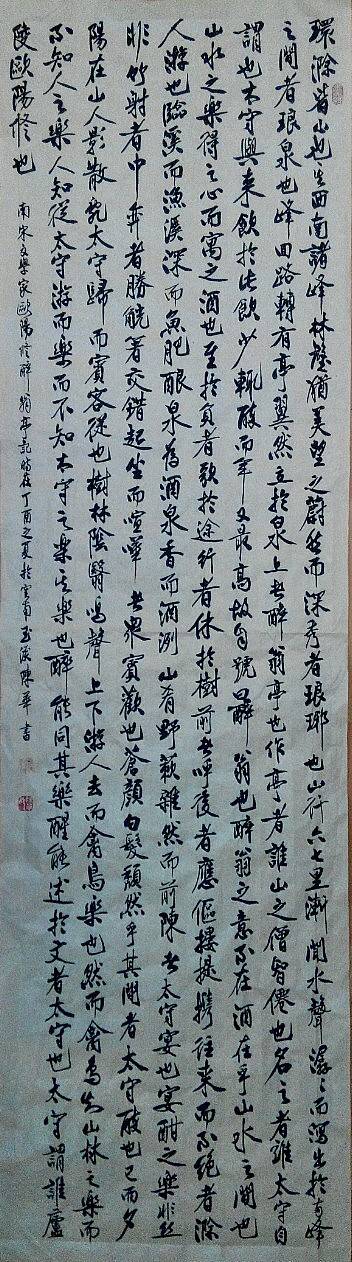 環滁皆山也其西南諸峰林壑猶美望之蔚然而深秀者琅琊也山行六七里漸聞水聲潺〻而瀉出於兩峰
之間者琅泉也峰回路轉有亭翼然立於泉上者醉翁亭也作亭者誰山之僧智僊也名之者誰太守自
謂也太守與來飲於此飲少輒醉而年又最高故自號醉翁也醉翁之意不在酒在乎山水之間也
山水之樂得之心而寓之酒也至於負者歌於途行者休於樹前者呼後者應傴僂提攜往來而不絕者滁
人游也臨溪而漁溪深而魚肥釀泉為酒泉香而酒洌山肴野蔌雜然而前陳者太守宴也宴酣之樂非絲
非竹射者中弈者勝觥籌交錯起坐而喧嘩者衆賓歡也蒼顏白髮頹然乎其間者太守醉也已而夕
陽在山人影散亂太守歸而賓客從也樹林陰翳鳴聲上下游人去而禽鳥樂也然而禽鳥知山林之樂而
不知人之樂人知從太守游而樂而不知太守之樂其樂也醉能同其樂醒能述於文者太守也太守謂誰廬
陵歐陽修也
南宋文學家歐陽修醉翁亭記時在丁酉之夏於雲南玉溪陳華書